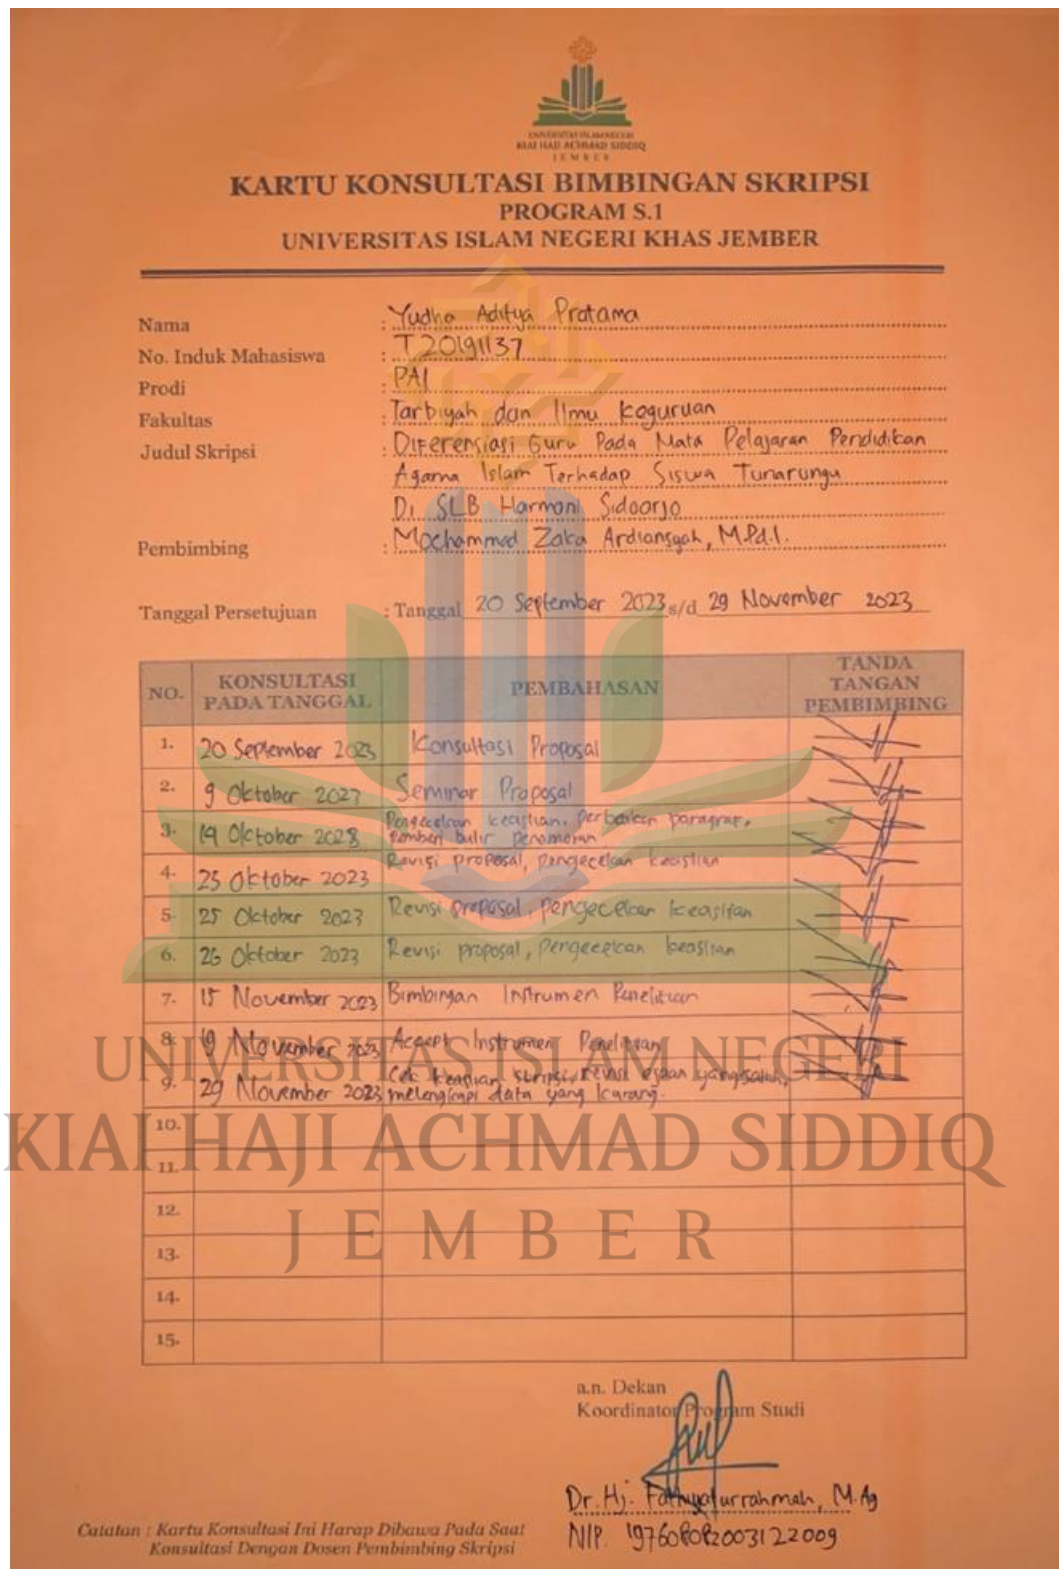 UNIVERSITAS ISLAM NEGERI
KIAI HAJI ACHMAD SIDDIQ
JEMBER
KARTU KONSULTASI BIMBINGAN SKRIPSI
PROGRAM S.1
UNIVERSITAS ISLAM NEGERI KHAS JEMBER
Nama : Yudha Aditya Pratama
No. Induk Mahasiswa : T20191137
Prodi : PAI
Fakultas : Tarbiyah dan Ilmu Keguruan
Judul Skripsi : Diferensiasi Guru Pada Mata Pelajaran Pendidikan
Agama Islam Terhadap Siswa Tunarungu
Di SLB Harmoni Sidoarjo
Pembimbing : Mochammad Zaka Ardiansyah, M.Pd.I.
Tanggal Persetujuan : Tanggal 20 September 2023 s/d 29 November 2023
NO. KONSULTASI PADA TANGGAL PEMBAHASAN TANDA TANGAN PEMBIMBING
1. 20 September 2023 Konsultasi Proposal
2. 9 Oktober 2023 Seminar Proposal
3. 19 Oktober 2023 Pengecekan keaslian, perbaikan paragraf,
pemberi butir penomoran
4. 23 Oktober 2023 Revisi proposal, pengecekan keaslian
5. 25 Oktober 2023 Revisi proposal, pengecekan keaslian
6. 26 Oktober 2023 Revisi proposal, pengecekan keaslian
7. 15 November 2023 Bimbingan Instrumen Penelitian
8. 19 November 2023 Accept Instrumen Penelitian
9. 29 November 2023 Cek keaslian skripsi, revisi ejaan yang salah,
melengkapi data yang kurang.
10.
11.
12.
13.
14.
15.
UNIVERSITAS ISLAM NEGERI
KIAI HAJI ACHMAD SIDDIQ
JEMBER
a.n. Dekan
Koordinator Program Studi
Dr. Hj. Fathiyaturrahmah, M.Ag
NIP. 197608082003122009
Catatan : Kartu Konsultasi Ini Harap Dibawa Pada Saat
Konsultasi Dengan Dosen Pembimbing Skripsi